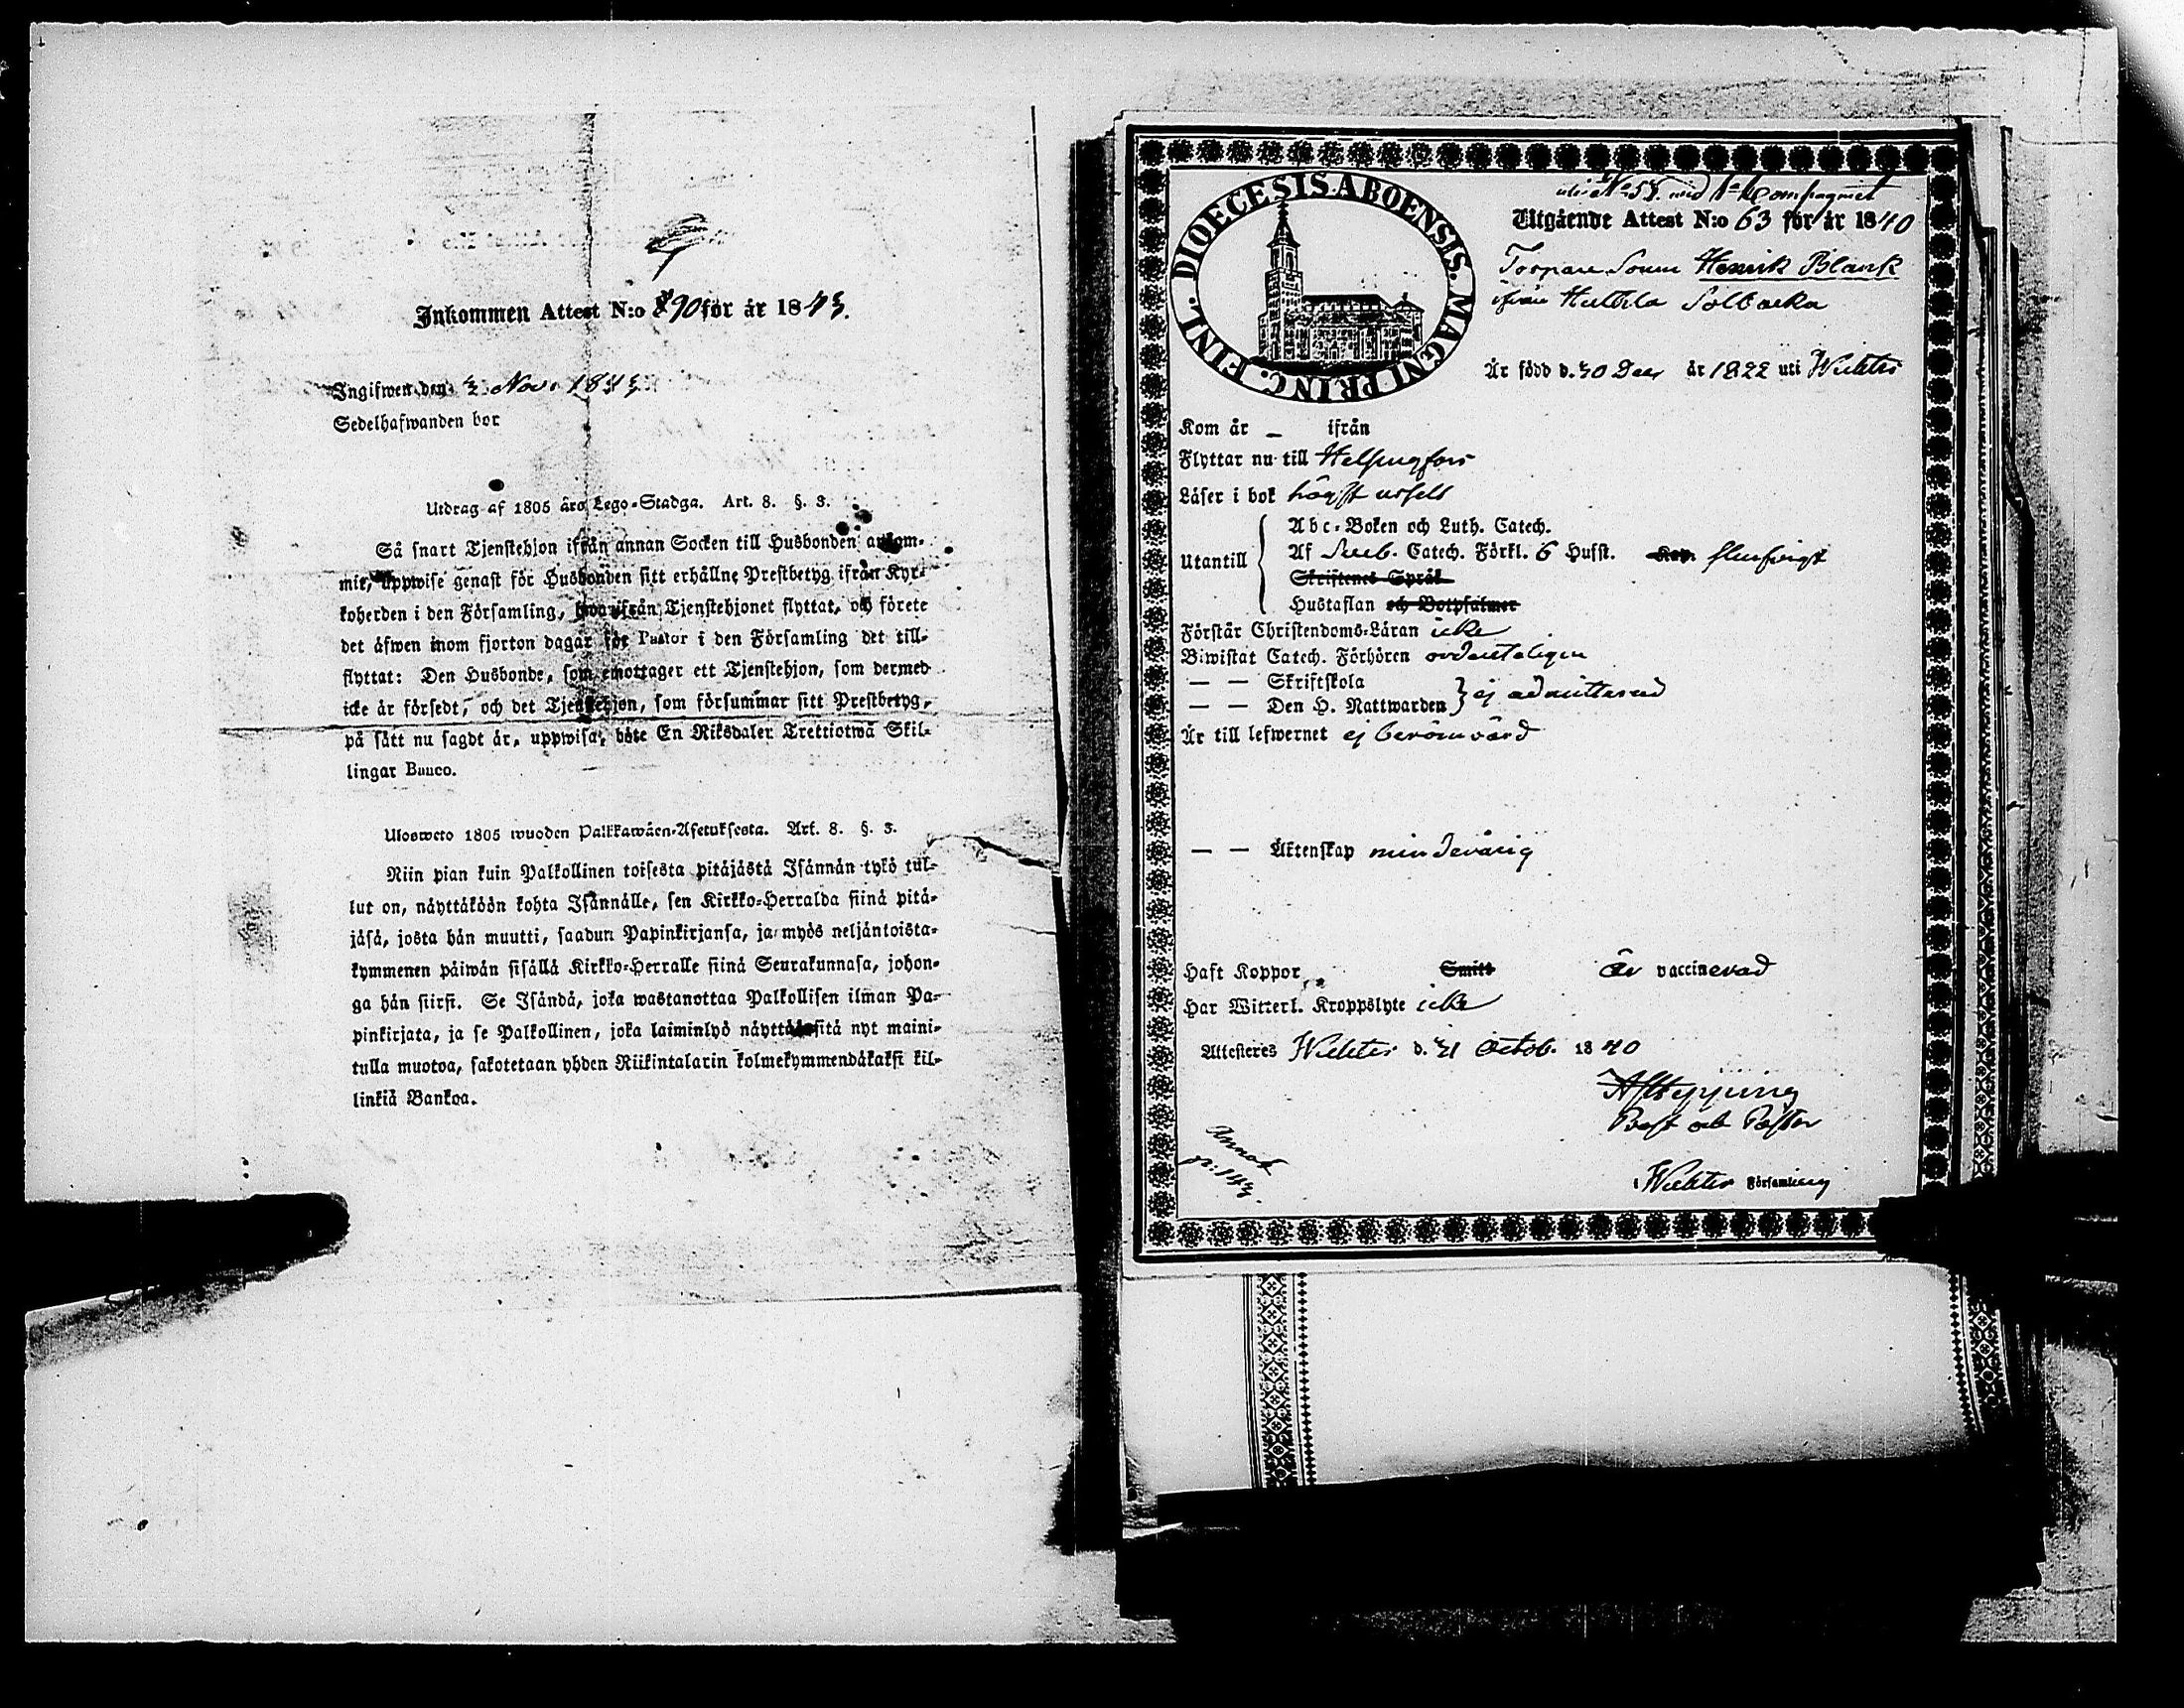 Inkommen Attest N:o 90 för år 1843.
Ingifwen den 3 Nov. 1843
Sedelhafwanden bor
Utdrag af 1805 års Lego-Stadga. Art. 8. §. 3.
Så snart Tjenstehjon ifrån annan Socken till Husbonden ankom-
mit, uppwise genast för Husbonden sitt erhållne Prestbetyg ifrån Kyr-
koherden i den Församling, hwarifrån Tjenstehjonet flyttat, och förete
det äfwen inom fjorton dagar för Pastor i den Församling det till-
flyttat: Den Husbonde, som emottager ett Tjenstehjon, som dermed
icke är försedt, och det Tjenstehjon, som försummar sitt Prestbetyg,
på sätt nu sagdt är, uppwisa, böte En Riksdaler Trettiotwå Skil-
lingar Banco.
Ulosweto 1805 wuoden Palkkawäen-Asetuksesta. Art. 8. §. 3.
Niin pian kuin Palkollinen toisesta pitäjästä Isännän tykö tul-
lut on, näyttäköön kohta Isännälle, sen Kirkko-Herralda siinä pitä-
jäsä, josta hän muutti, saadun Papinkirjansa, ja myös neljäntoista-
kymmenen päiwän sisällä Kirkko-Herralle siinä Seurakunnasa, johon-
ga hän siirsi. Se Isändä, joka wastanottaa Palkollisen ilman Pa-
pinkirjata, ja se Palkollinen, joka laiminlyö näyttää sitä nyt maini-
tulla muotoa, sakotetaan yhden Riikintalarin kolmekymmendäkaksi kil-
linkiä Bankoa.
DIOECESIS ABOENSIS. MAGNI PRINC. FINL.
Utgående Attest N:o 63 för år 1840
Torpare Sonen Henrik Blank
ifrån Huthla Solbacka
Är född d. 30 Dec. år 1822 uti Wichtis
Kom år — ifrån
Flyttar nu till Helsingfors
Läser i bok högst usselt
Utantill
Abc-Boken och Luth. Catech.
Af Sveb. Catech. Förkl. 6 Hufst. Kap.
Skriftenes Språk
Hustaflan och Botpsalmer
Förstår Christendoms-Läran icke
Biwistat Catech. Förhören ordenteligen
— — Skriftskola
— — Den H. Nattwarden } ej admitterad
Är till lefwernet ej berömvärd
— — Äktenskap mindevärig
Haft Koppor Smitt är vaccinerad
Har Witterl. Kroppslyte icke
Attesteres Wichtis d. 31 Octob. 1840
Wichtis Församling
Annot
p: 143.